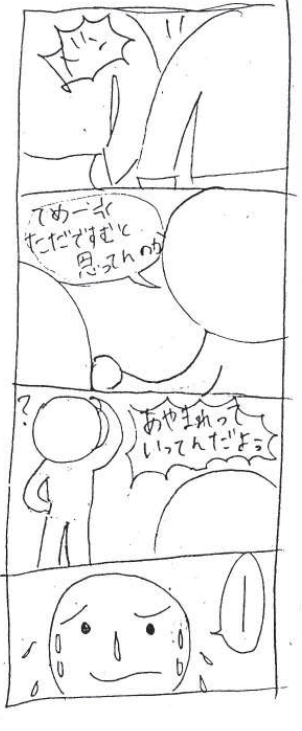 バン
てめー
ただですむと
思ってんのか
?
あやまれって
いってんだよう